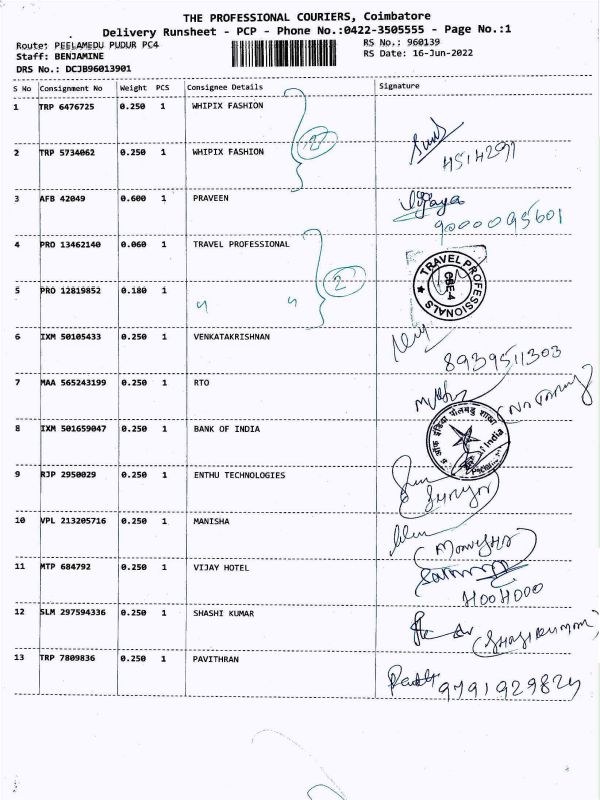 THE PROFESSIONAL COURIERS, Coimbatore
Delivery Runsheet - PCP - Phone No.:0422-3505555 - Page No.:1
Route: PEELAMEDU PUDUR PC4
RS No.: 960139
Staff: BENJAMINE
RS Date: 16-Jun-2022
DRS No.: DCJB96013901
S No Consignment No Weight PCS Consignee Details Signature
1 TRP 6476725 0.250 1 WHIPIX FASHION
2
2 TRP 5734062 0.250 1 WHIPIX FASHION
4514291
3 AFB 42049 0.600 1 PRAVEEN Vijaya
9000095601
4 PRO 13462140 0.060 1 TRAVEL PROFESSIONAL
2
TRAVEL PROFESSIONALS
CBE-4
5 PRO 12819852 0.180 1 " "
6 IXM 50105433 0.250 1 VENKATAKRISHNAN
8939511303
7 MAA 565243199 0.250 1 RTO
8 IXM 501659047 0.250 1 BANK OF INDIA
of India
9 RJP 2950029 0.250 1 ENTHU TECHNOLOGIES
Suriya
10 VPL 213205716 0.250 1 MANISHA
(Manisha)
11 MTP 684792 0.250 1 VIJAY HOTEL
HOOHOOO
12 SLM 297594336 0.250 1 SHASHI KUMAR
(SHASIKUMAR)
13 TRP 7809836 0.250 1 PAVITHRAN
9791929824